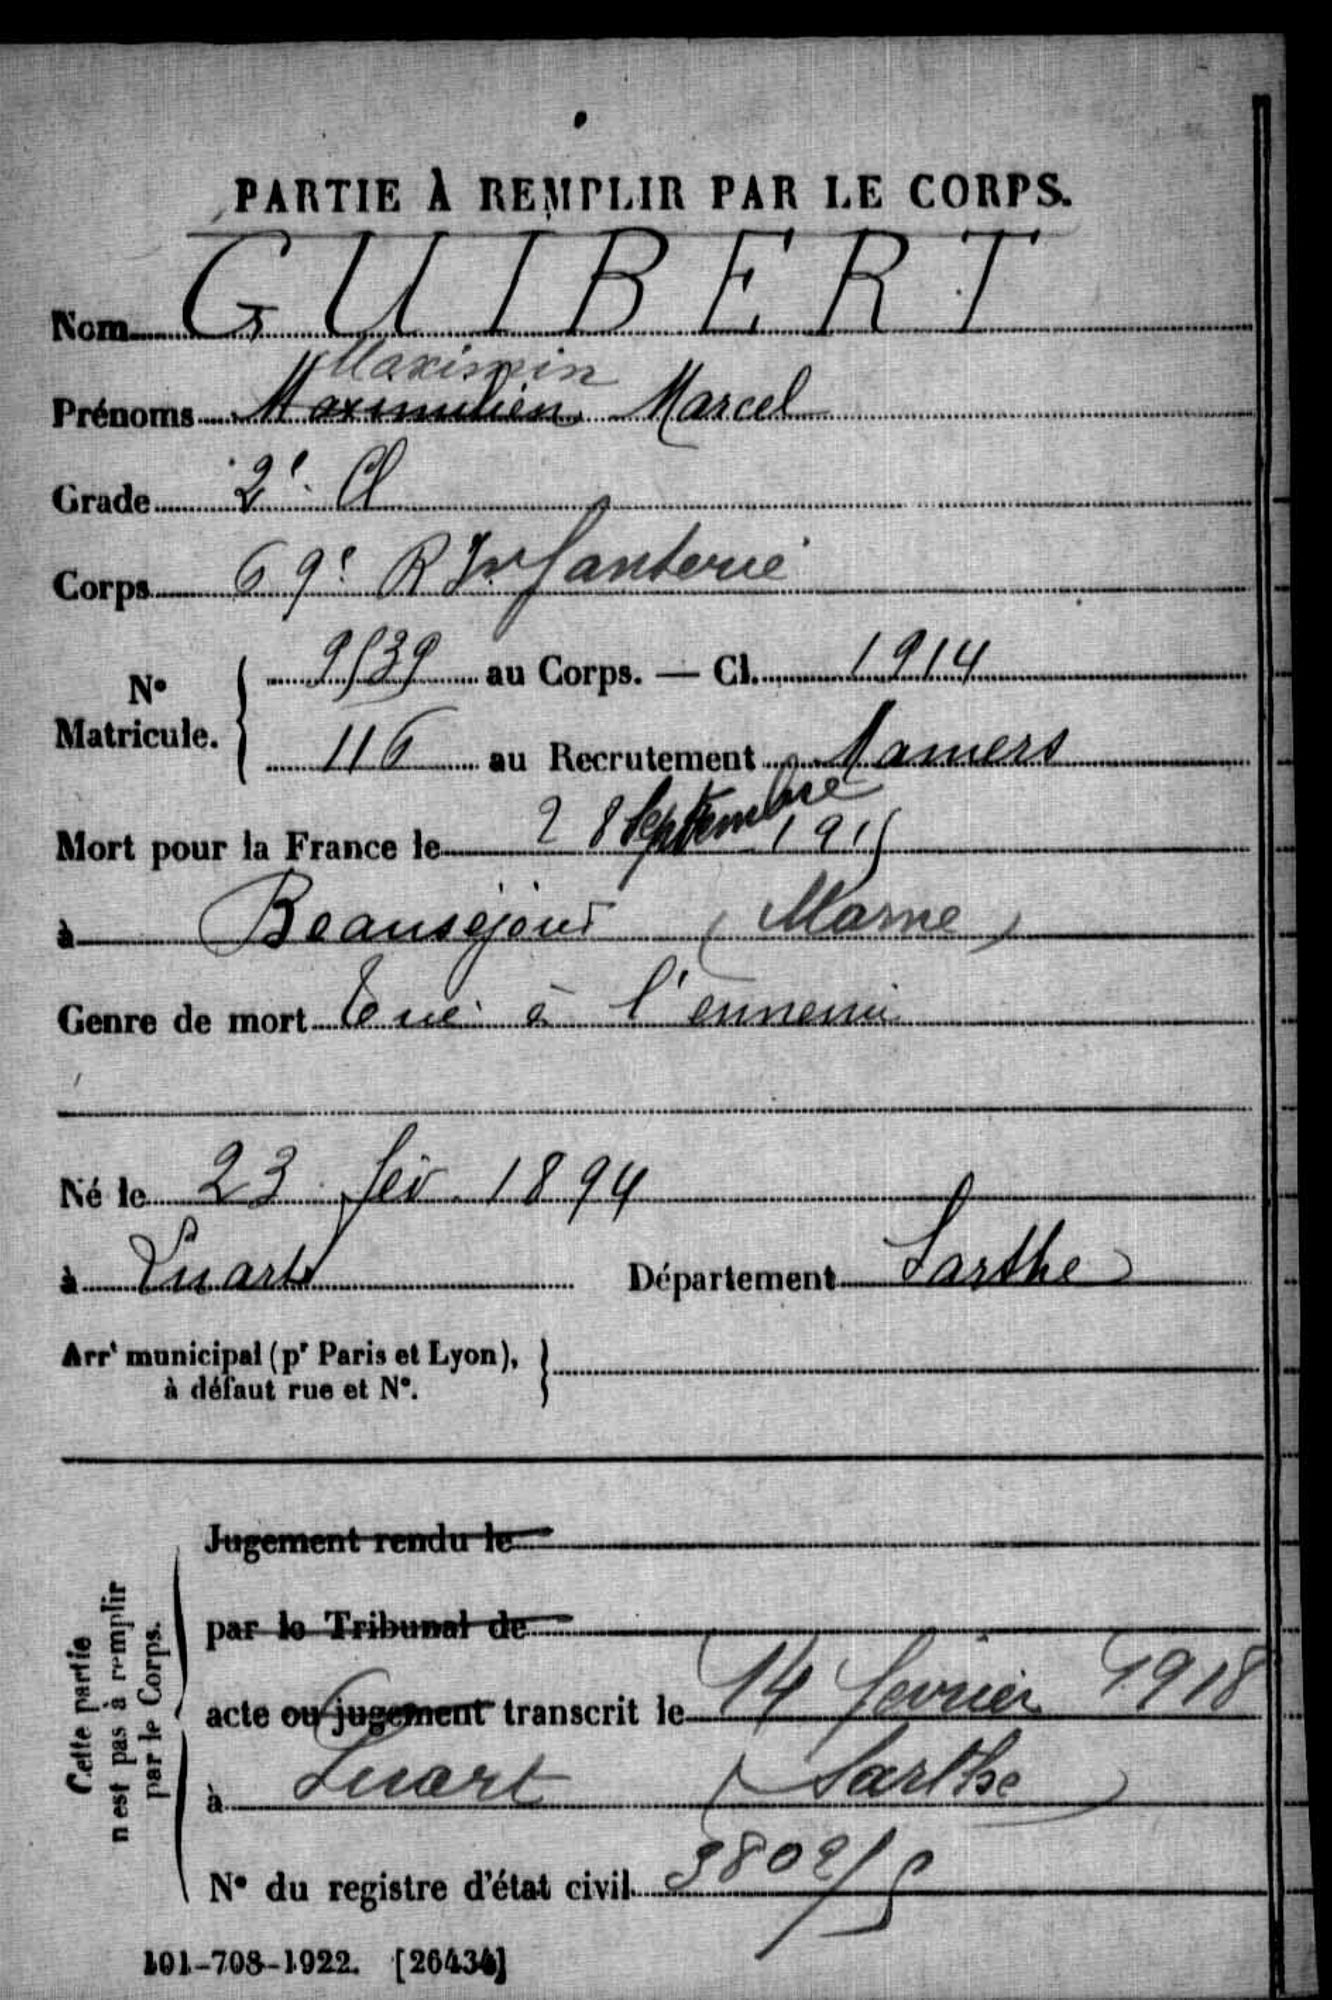 PARTIE À REMPLIR PAR LE CORPS.
Nom GUIBERT
Maximin
Prénoms Maximilien Marcel
Grade 2e Cl
Corps 69e R Infanterie
No Matricule. 9539 au Corps. — Cl. 1914
116 au Recrutement Mamers
Mort pour la France le 28 Septembre 1915
à Beauséjour (Marne)
Genre de mort Tué à l'ennemi
Né le 23 fév. 1894
à Luart Département Sarthe
Arrt municipal (pr Paris et Lyon),
à défaut rue et No.
Jugement rendu le
par le Tribunal de
acte ou jugement transcrit le 14 février 1918
à Luart (Sarthe)
No du registre d'état civil
Cette partie
n'est pas à remplir
par le Corps.
101-708-1922. [26434]